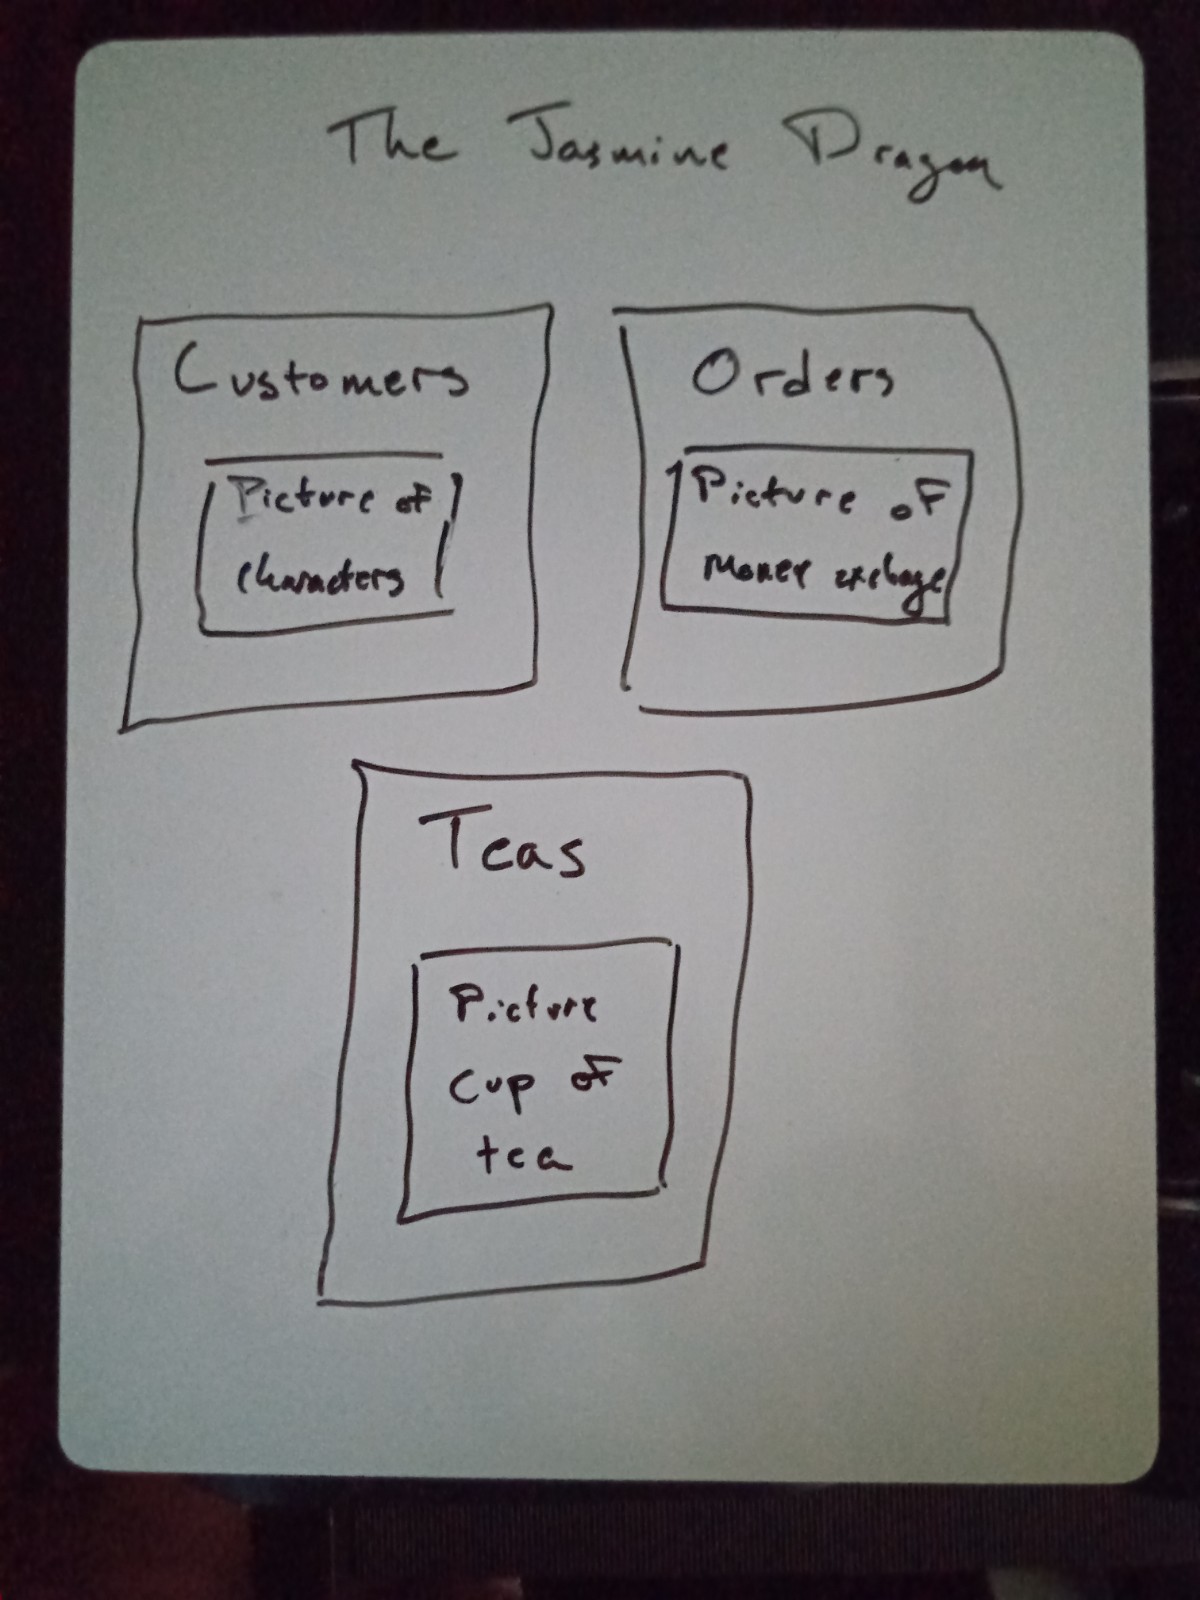 The Jasmine Dragon
Customers
Picture of
characters
Orders
Picture of
Money exchage
Teas
Picture
cup of
tea